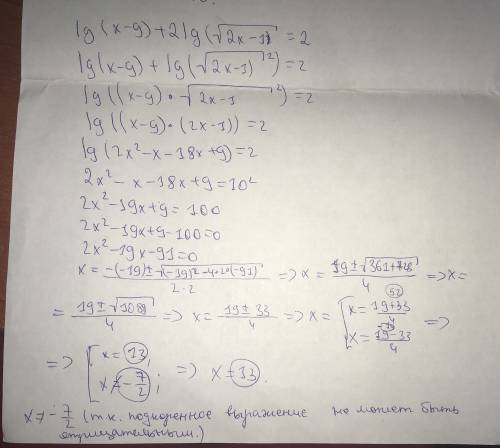 lg(x-9)+2lg(√2x-1)=2
lg(x-9)+lg(√2x-1)²)=2
lg((x-9)·√2x-1²)=2
lg((x-9)·(2x-1))=2
lg(2x²-x-18x+9)=2
2x²-x-18x+9=10²
2x²-19x+9=100
2x²-19x+9-100=0
2x²-19x-91=0
x=(-(-19)±√(-19)²-4·2·(-91))/(2·2) => x=(19±√361+728)/4 => x=
=(19±√1089)/4 => x=(19±33)/4 => x=[x=(19+33)/4 52 x=(19-33)/4 -14 =>
=> [x=13, x≠-7/2; => x=13.
x≠-7/2 (т.к. подкоренное выражение не может быть
отрицательным.)